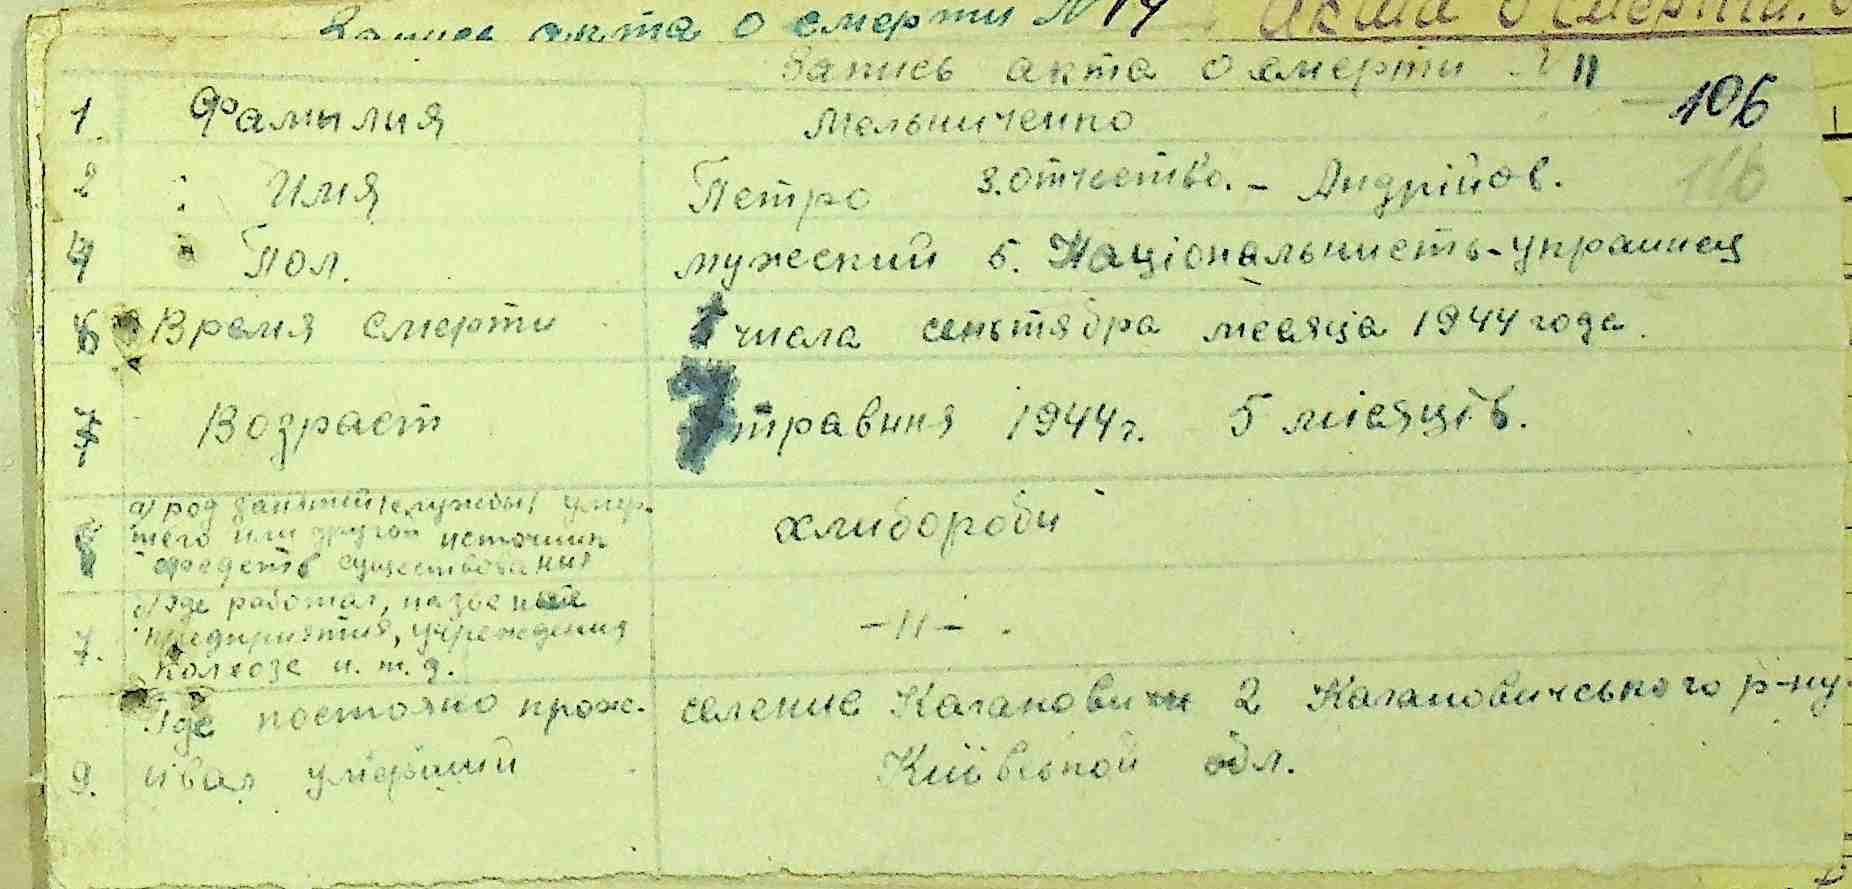 Запись акта о смерти N 14 Акта о смерти.
Запись акта о смерти N 11
106
1. Фамилия Мельниченко
116
2 : Имя Петро 3. отчество. - Андрійов.
4 Пол. мужеский 5. Національнисть - украинец
6 Время смерти 1 числа сеньтября месяца 1944 года.
7 Возраст 7 травння 1944 г. 5 місяців.
8 а) род занятий /службы/ умер-
шего или другой источник
средств существования хлибороби
где работал, назвение
7. предприятия, учреждения - " - .
колхозе и. т. д.
Где постояно прож- селение Каганович 2 Кагановичського р-ну.
9. ивал умерший Київской обл.